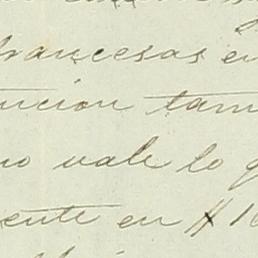 francesas en
ución tam
no vale lo q
ente en $ 10